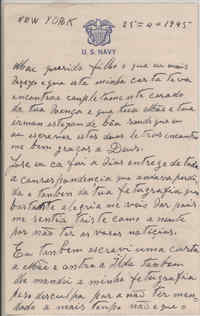 NEW YORK 25=4=1945
U.S. NAVY
Meu querido filho o que eu mais
desejo e que esta minha carta te va
encontrar completamente curado
da tua doença e que tua mãe e tua
irman estejam de boa saude que eu
ao escrever estas duas letras encontro
me bem graças a Deus.
José eu ca foi a dias entregue de toda
a correspondencia que andava perdi
da e tambem da tua fotografia que
bastante alegria me veio dar pois
me sentia triste como a noute
por não ter as vossas noticias.
Eu tambem escrevi uma carta
a mãe e outra a Ilda tambem
lhe mandei a minha fotografia
peço desculpa por a não ter man
dado a mais tempo não e que